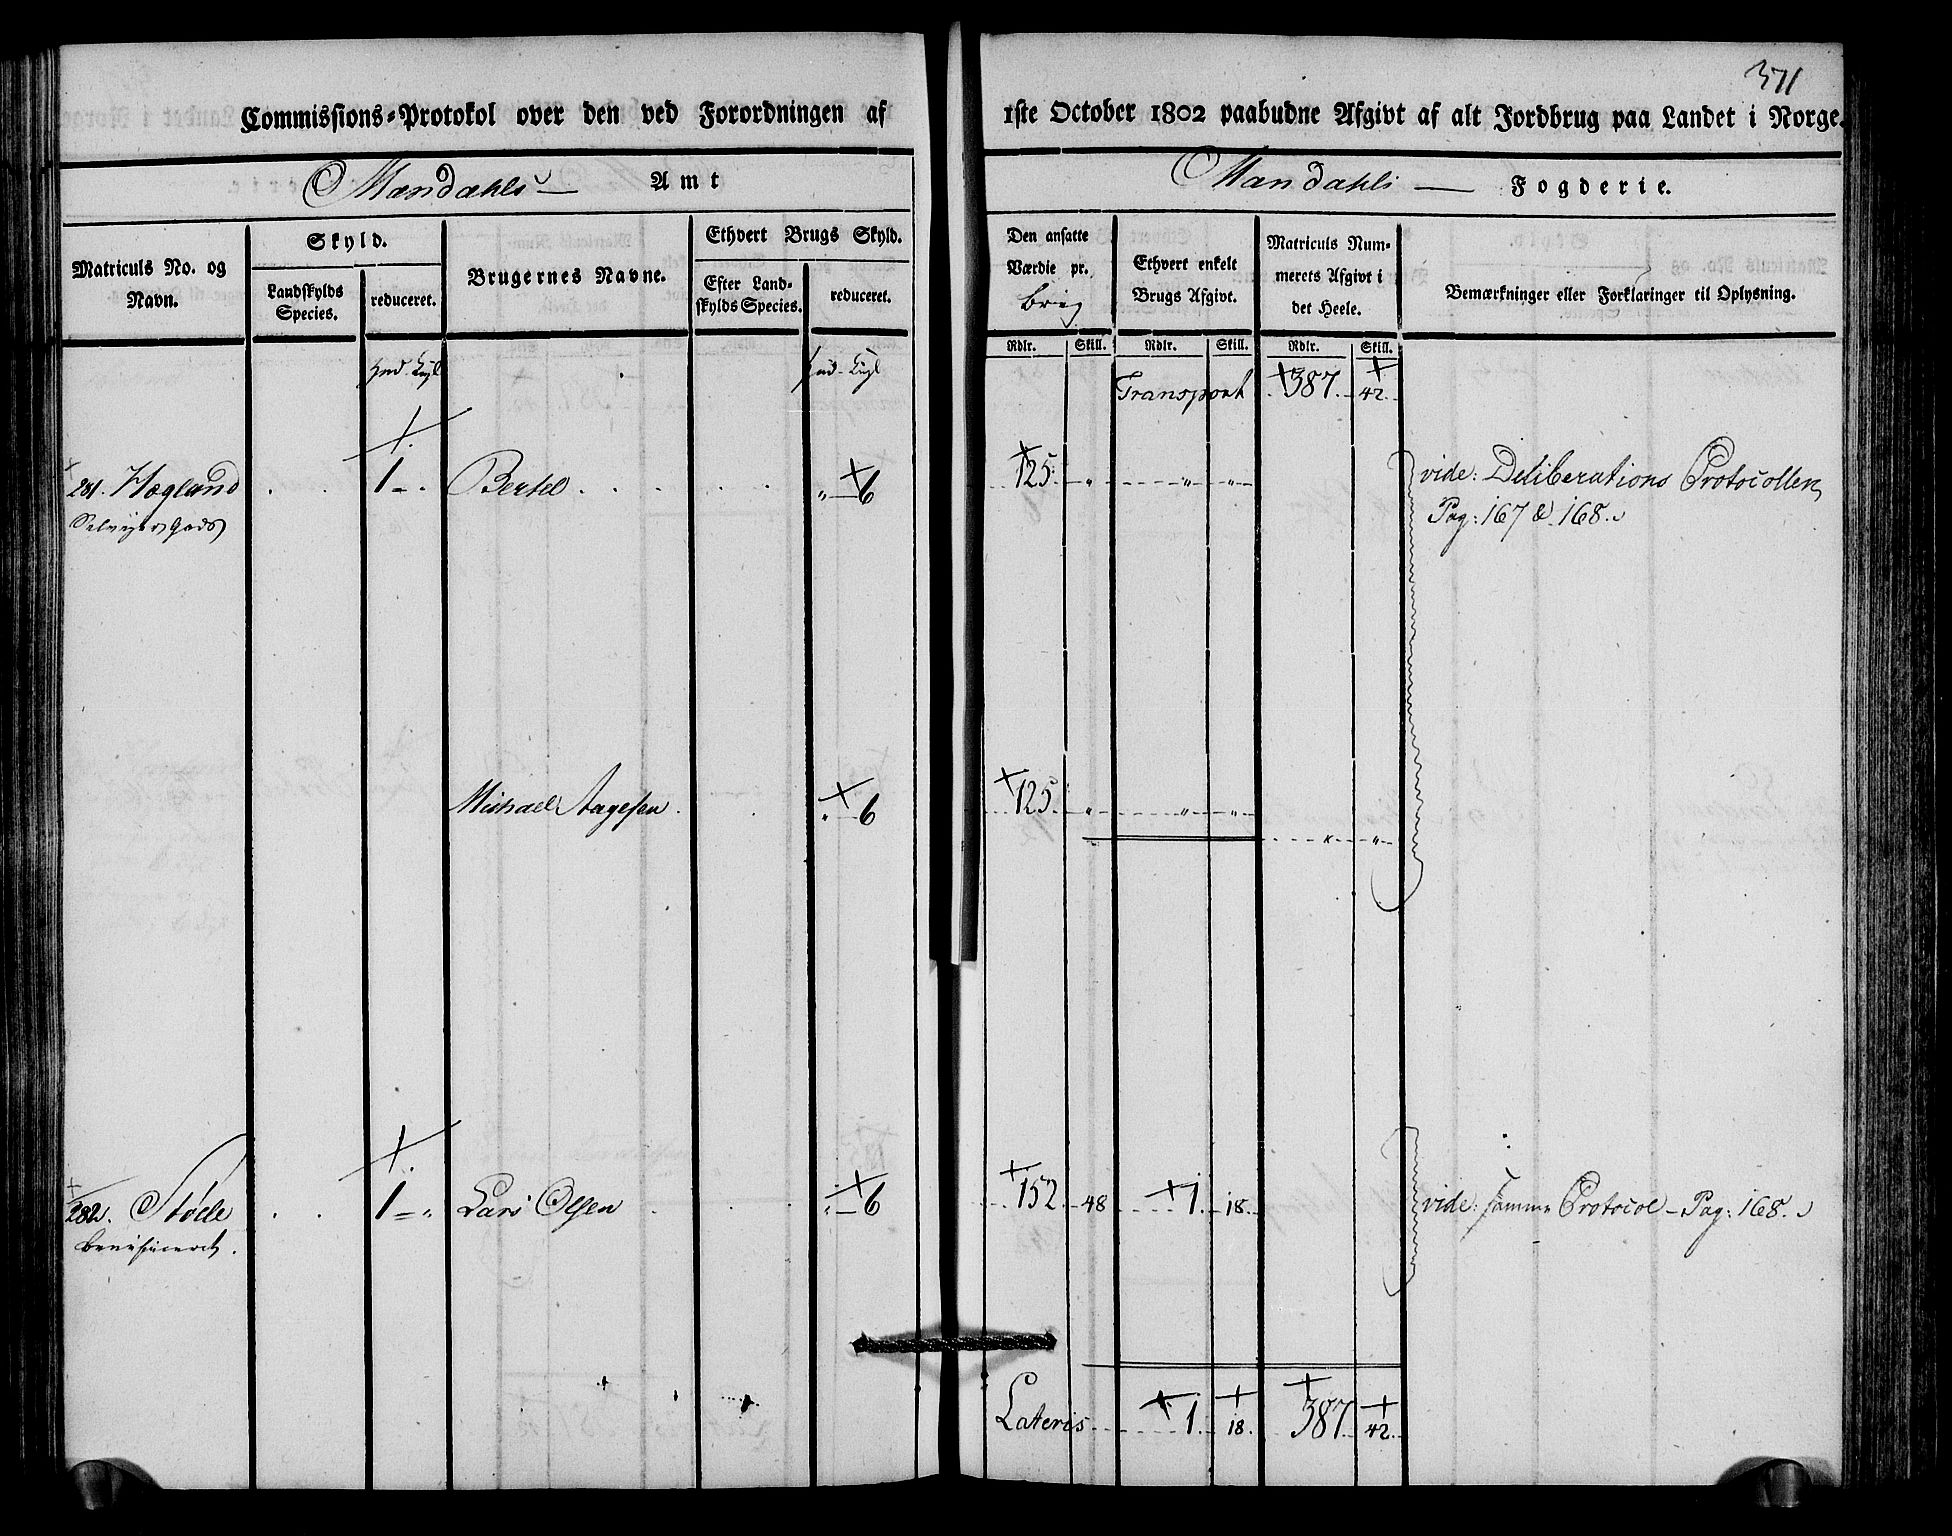 371
Commissions-Protokol over den ved Forordningen af 1ste October 1802 paabudne Afgivt af alt Jordbrug paa Landet i Norge.
Mandahls Amt
Mandahls Fogderie.
Matriculs No. og Navn.
Skyld.
Landskylds Species.
reduceret.
Brugernes Navne.
Ethvert Brugs Skyld.
Efter Landskylds Species.
reduceret.
Den ansatte Værdie pr. Brug
Ethvert enkelt Brugs Afgivt.
Matriculs Nummerets Afgivt i det Heele.
Bemærkninger eller Forklaringer til Oplysning.
Rdlr. Skill. Rdlr. Skill. Rdlr. Skill.
Hud. Hud.
Transport 387. 42.
281. Høgland 1 - . Bertel . . . . . „ - 6 125. „ „ „ vide: Deliberations Protocollen
Pag: 167 & 168.
Michael Aagesen . „ - 6 125. „ „ „
„ „
282. Støde . . 1 - „ Lars Olsen „ - 6 152 48 1. 18. vide: samme Protocol - Pag: 168.
beneficeret.
Lateris 1. 18. 387. 42.